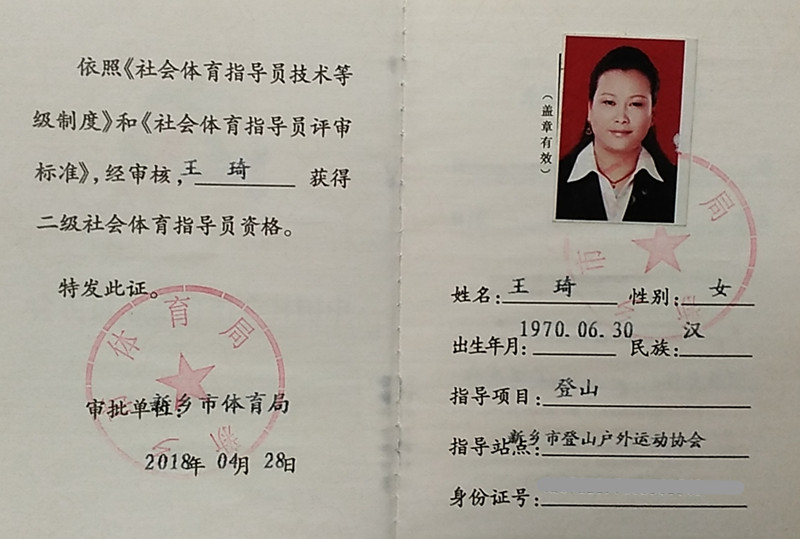 依照《社会体育指导员技术等
级制度》和《社会体育指导员评审
标准》,经审核,王 琦 获得
二级社会体育指导员资格。
特发此证。
体育局
审批单位:新乡市体育局
2018年 04月 28日
(盖章有效)
市 局
姓名:王 琦 性别:女
出生年月:1970.06.30 民族:汉
指导项目:登山
指导站点:新乡市登山户外运动协会
身份证号: